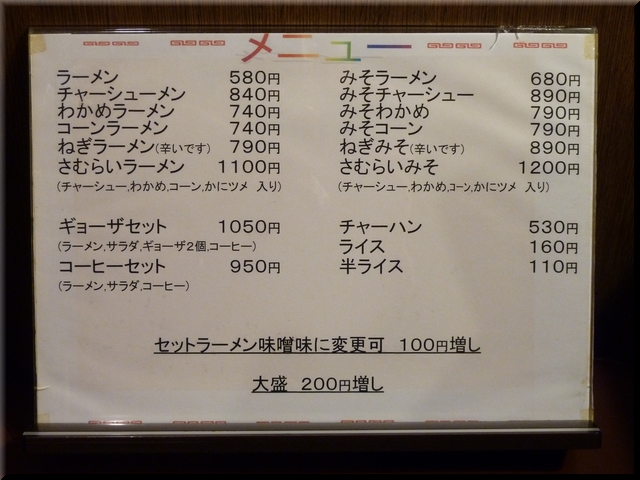 メニュー
ラーメン 580円
チャーシューメン 840円
わかめラーメン 740円
コーンラーメン 740円
ねぎラーメン(辛いです) 790円
さむらいラーメン 1100円
(チャーシュー,わかめ,コーン,かにツメ 入り)
ギョーザセット 1050円
(ラーメン,サラダ,ギョーザ2個,コーヒー)
コーヒーセット 950円
(ラーメン,サラダ,コーヒー)
みそラーメン 680円
みそチャーシュー 890円
みそわかめ 790円
みそコーン 790円
ねぎみそ(辛いです) 890円
さむらいみそ 1200円
(チャーシュー,わかめ,コーン,かにツメ 入り)
チャーハン 530円
ライス 160円
半ライス 110円
セットラーメン味噌味に変更可 100円増し
大盛 200円増し